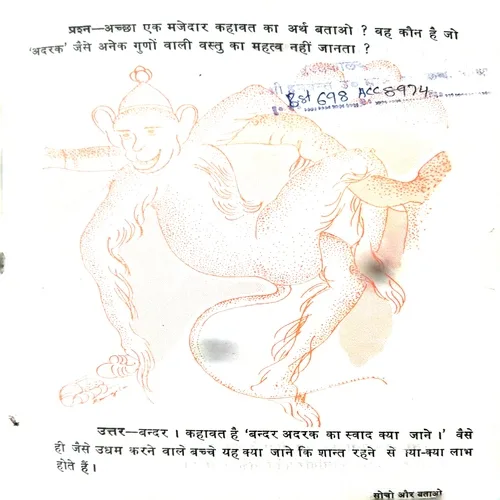 प्रश्न—अच्छा एक मजेदार कहावत का अर्थ बताओ ? वह कौन है जो
'अदरक' जैसे अनेक गुणों वाली वस्तु का महत्व नहीं जानता ?
Bst 698 ACC 8974
उत्तर—बन्दर । कहावत है 'बन्दर अदरक का स्वाद क्या जाने ।' वैसे
ही जैसे उधम करने वाले बच्चे यह क्या जानें कि शान्त रहने से क्या-क्या लाभ
होते हैं ।
सोचो और बताओ